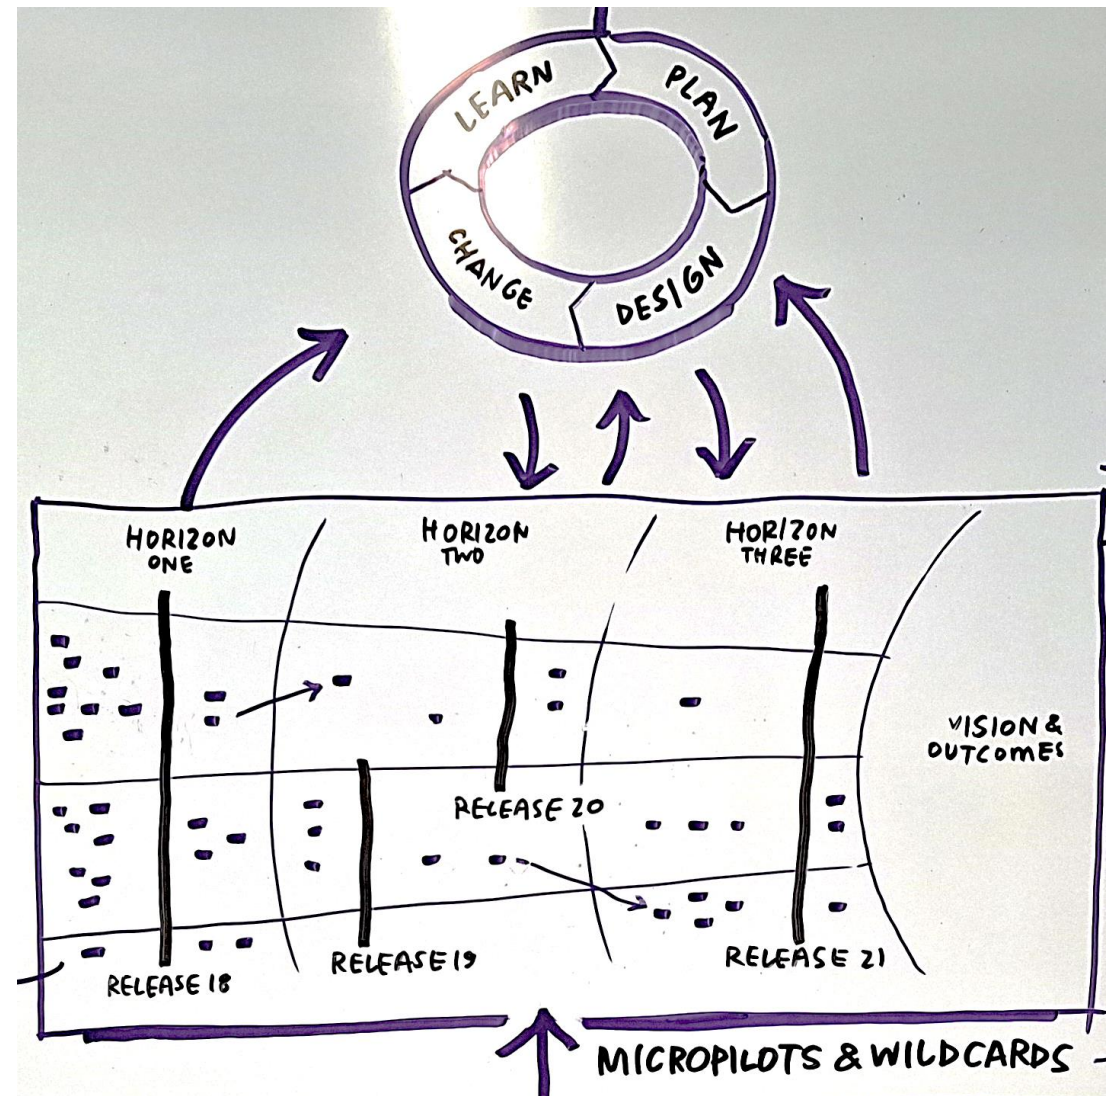 LEARN
PLAN
CHANGE
DESIGN
HORIZON
ONE
HORIZON
TWO
HORIZON
THREE
VISION &
OUTCOMES
RELEASE 20
RELEASE 19
RELEASE 21
RELEASE 18
MICROPILOTS & WILDCARDS